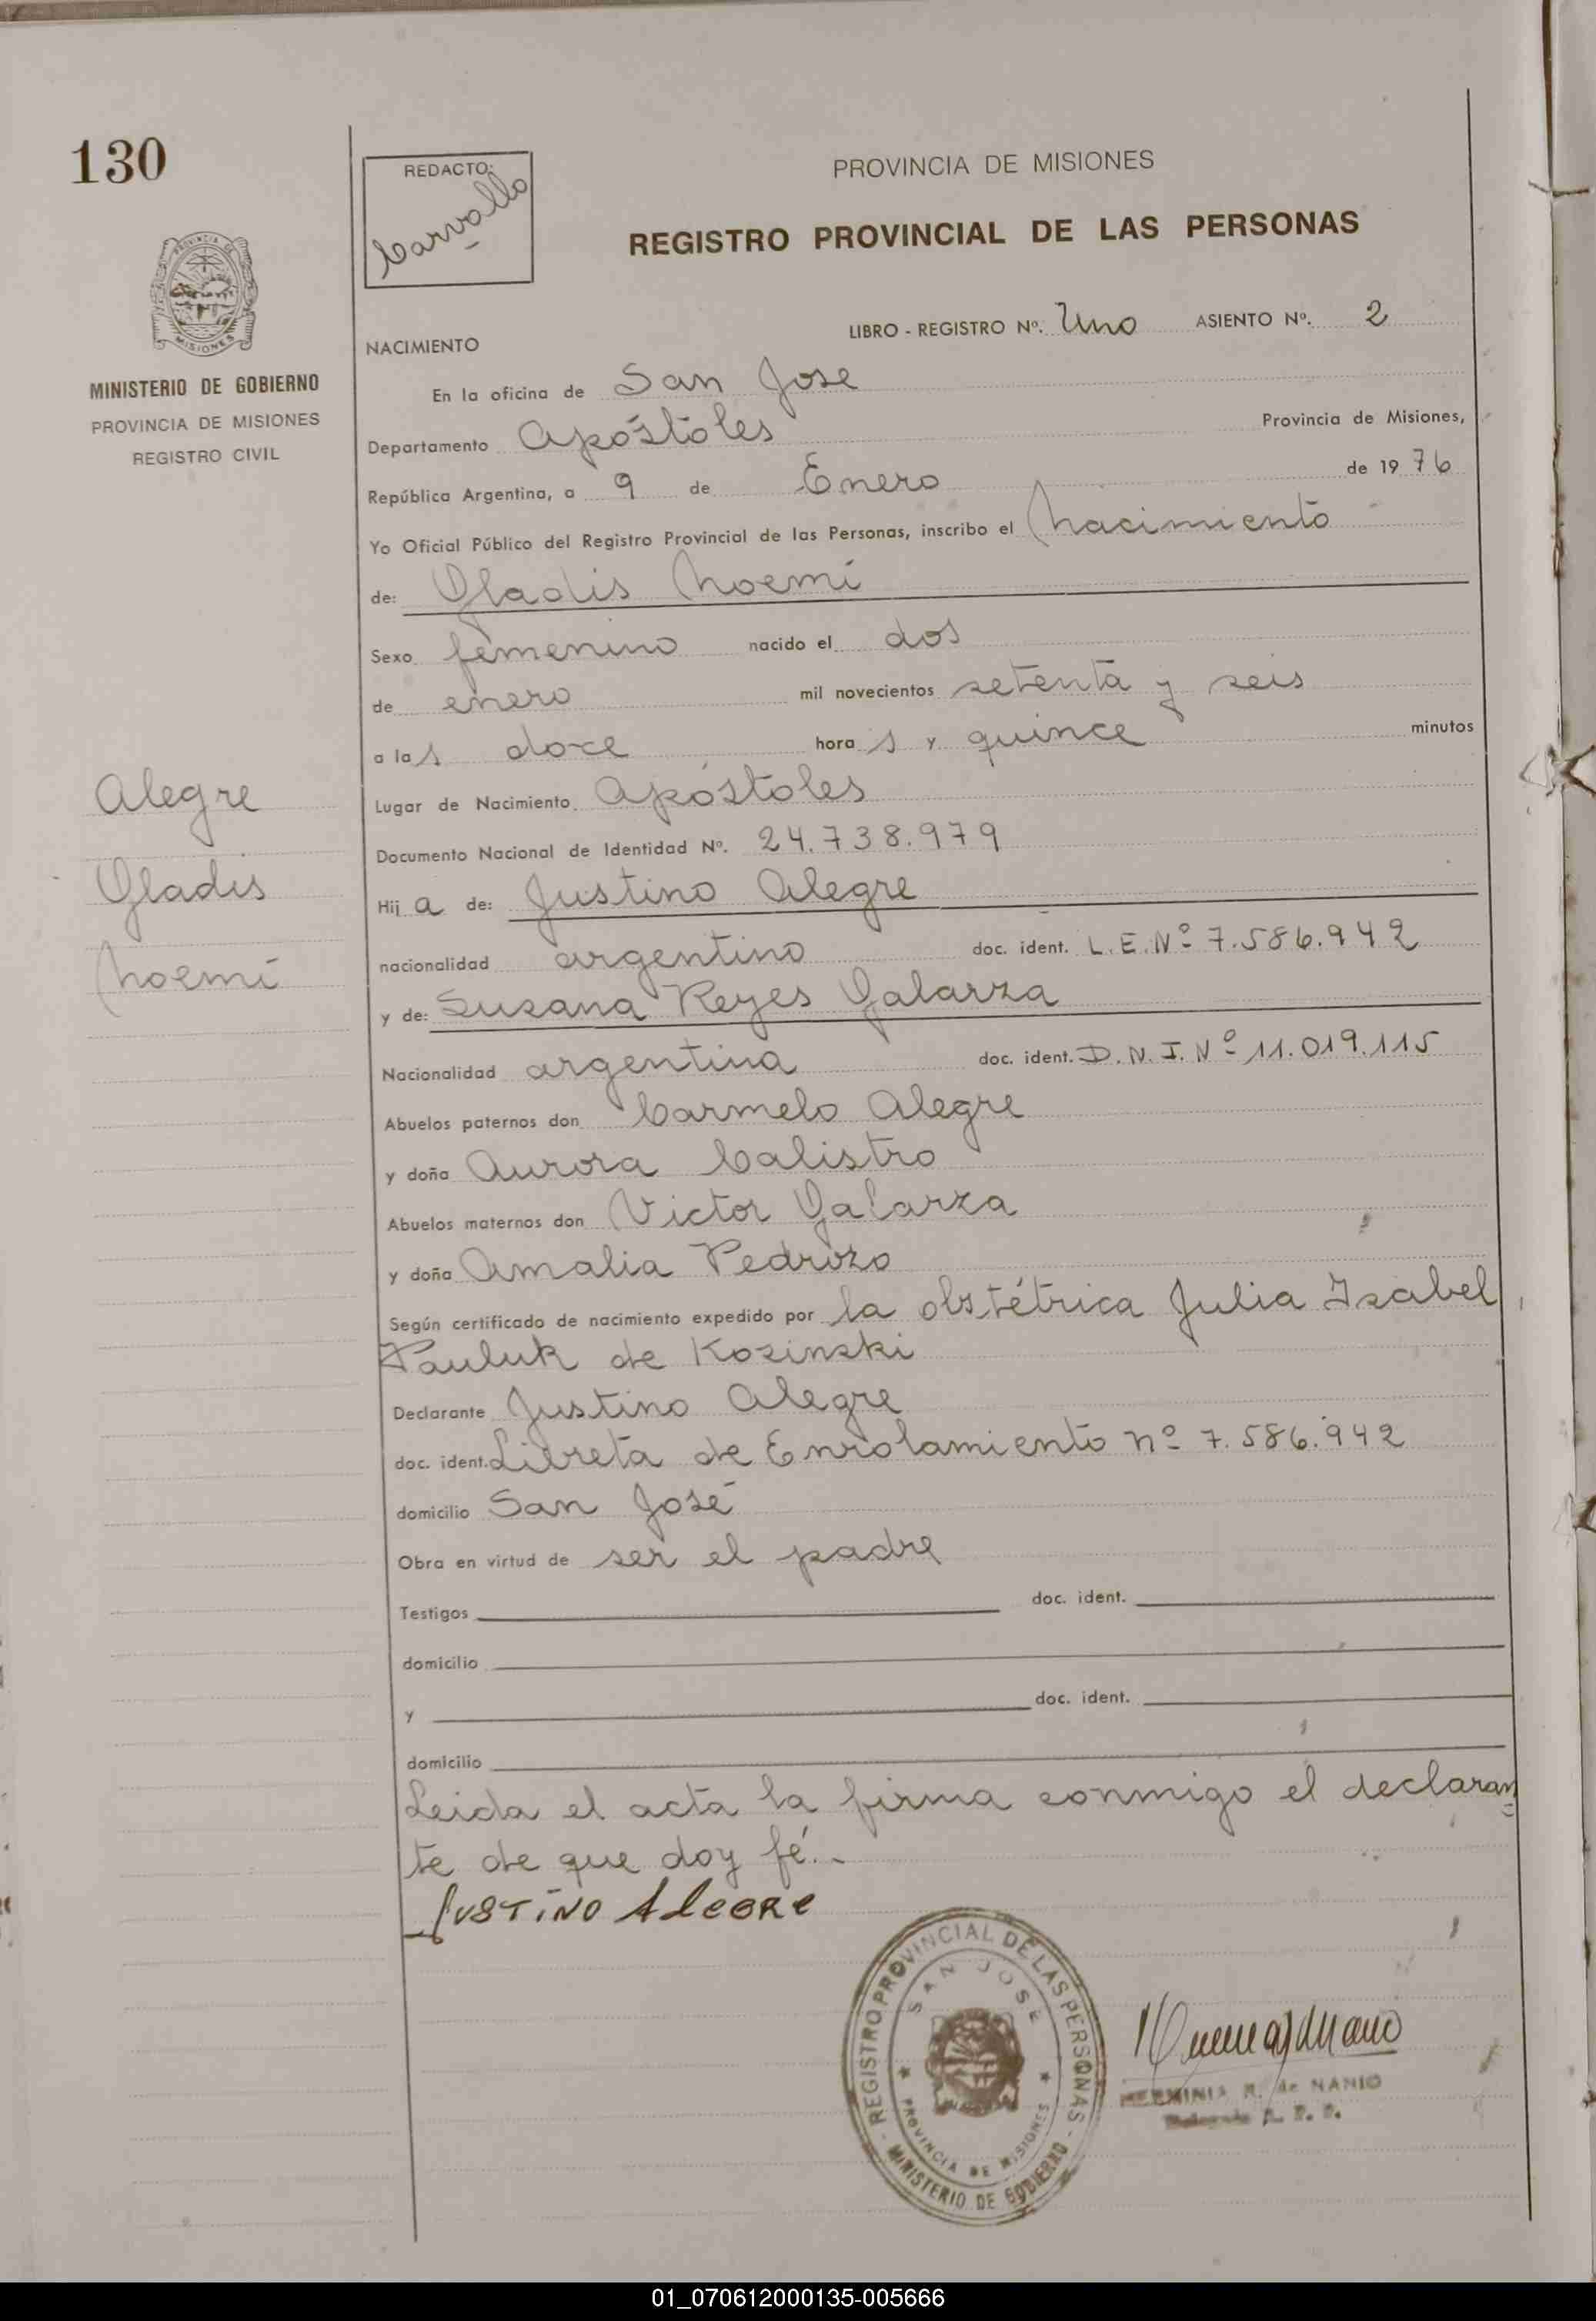 130
REDACTO:
Carvallo
PROVINCIA DE MISIONES
REGISTRO PROVINCIAL DE LAS PERSONAS
MISIONES
MINISTERIO DE GOBIERNO
PROVINCIA DE MISIONES
REGISTRO CIVIL
LIBRO - REGISTRO Nº. Uno ASIENTO Nº. 2
NACIMIENTO
En la oficina de San Jose
Departamento Apóstoles Provincia de Misiones,
República Argentina, a 9 de Enero de 1976
Yo Oficial Público del Registro Provincial de las Personas, inscribo el Nacimiento
de: Gladis Noemí
Sexo femenino nacido el dos
de enero mil novecientos setenta y seis
a las doce horas y quince minutos
Lugar de Nacimiento Apóstoles
Documento Nacional de Identidad Nº. 24.738.979
Hija de: Justino Alegre
nacionalidad argentino doc. ident. L.E.Nº 7.586.942
y de: Susana Reyes Galarza
Nacionalidad argentina doc. ident. D.N.I.Nº 11.019.115
Abuelos paternos don Carmelo Alegre
y doña Aurora Calistro
Abuelos maternos don Victor Galarza
y doña Amalia Pedrozo
Según certificado de nacimiento expedido por la obstétrica Julia Isabel
Pauluk de Kozinski
Declarante Justino Alegre
doc. ident. Libreta de Enrolamiento nº 7.586.942
domicilio San José
Obra en virtud de ser el padre
Testigos doc. ident.
domicilio
y doc. ident.
domicilio
Leida el acta la firma conmigo el declaran
te de que doy fé.-
Justino Alegre
Alegre
Gladis
Noemí
REGISTRO PROVINCIAL DE LAS PERSONAS - MINISTERIO DE GOBIERNO -
SAN JOSE
PROVINCIA DE MISIONES
HERMINIA R. de NANIO
01_070612000135-005666